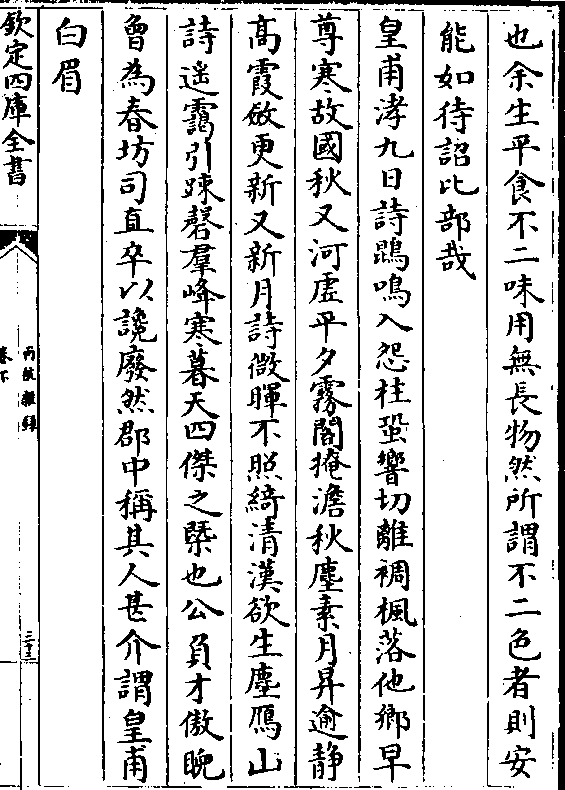 也余生平食不二味用無長物然所謂不二色者則安
能如待詔比部哉
皇甫涍九日詩鵾鳴入怨柱蛩響切離裯楓落他鄉早
尊寒故國秋又河虛平夕霧閣掩澹秋塵素月昇逾静
高霞斂更新又新月詩微暉不照綺清漢欲生塵鴈山
詩遥靄引踈磬羣峰寒暮天四傑之槩也公負才傲睨
曾為春坊司直卒以讒廢然郡中稱其人甚介謂皇甫
白眉
欽定四庫全書
卷下
三十三